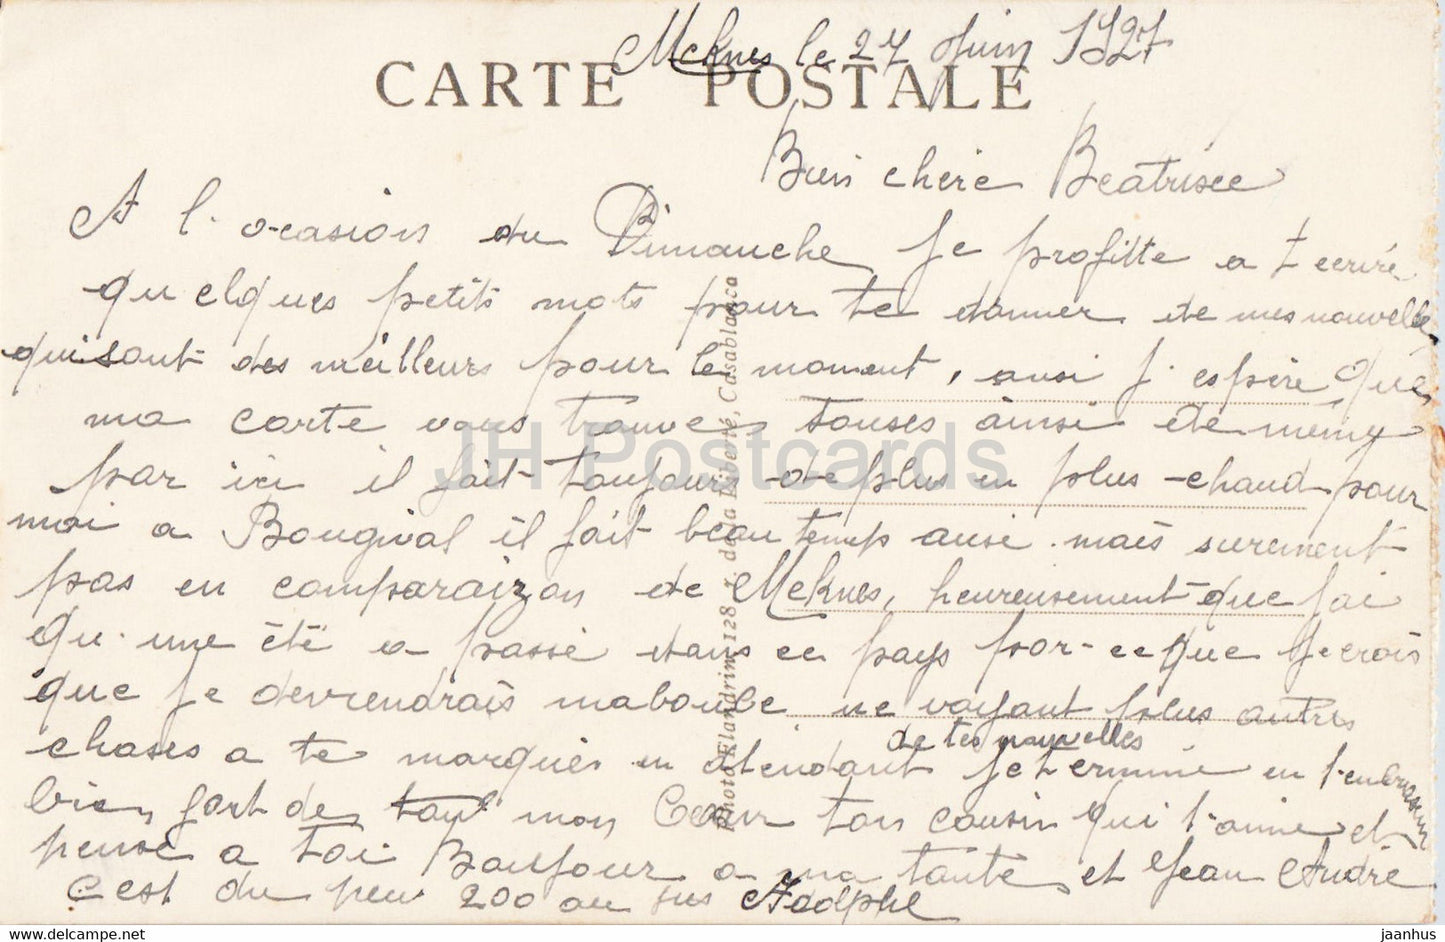 Meknes le 27 Juin 1927
CARTE POSTALE
Bien chère Beatrisce
A l'ocasion du Dimanche je profitte a t ecriré
quelques petits mots pour te danner de mes nouvelle
qui sont des meilleurs pour le moment, ausi j'espère que
ma carte vous trouve touses ainsi de même
par ici il fait toujours de plus en plus chaud pour
moi a Bougival il fait beau temps ausi mais surement
pas en comparaizon de Meknes, heureusement que jai
qu'une été a passé dans ce pays par-ce que je crois
que je devrendrais maboube ne vayant plus autres
choses a te marquér en atendant de tes nouvelles je termine en t'enbrassen
bien fort de tout mon Cœur ton cousin qui t'aime et
pense a toi Bonjour a ma tante et Jean André
c'est du peu 200 au jus Adolphe
Photo Flandrin, 128, r. de la Liberté, Casablanca
JH Postcards
www.delcampe.net
jaanhus